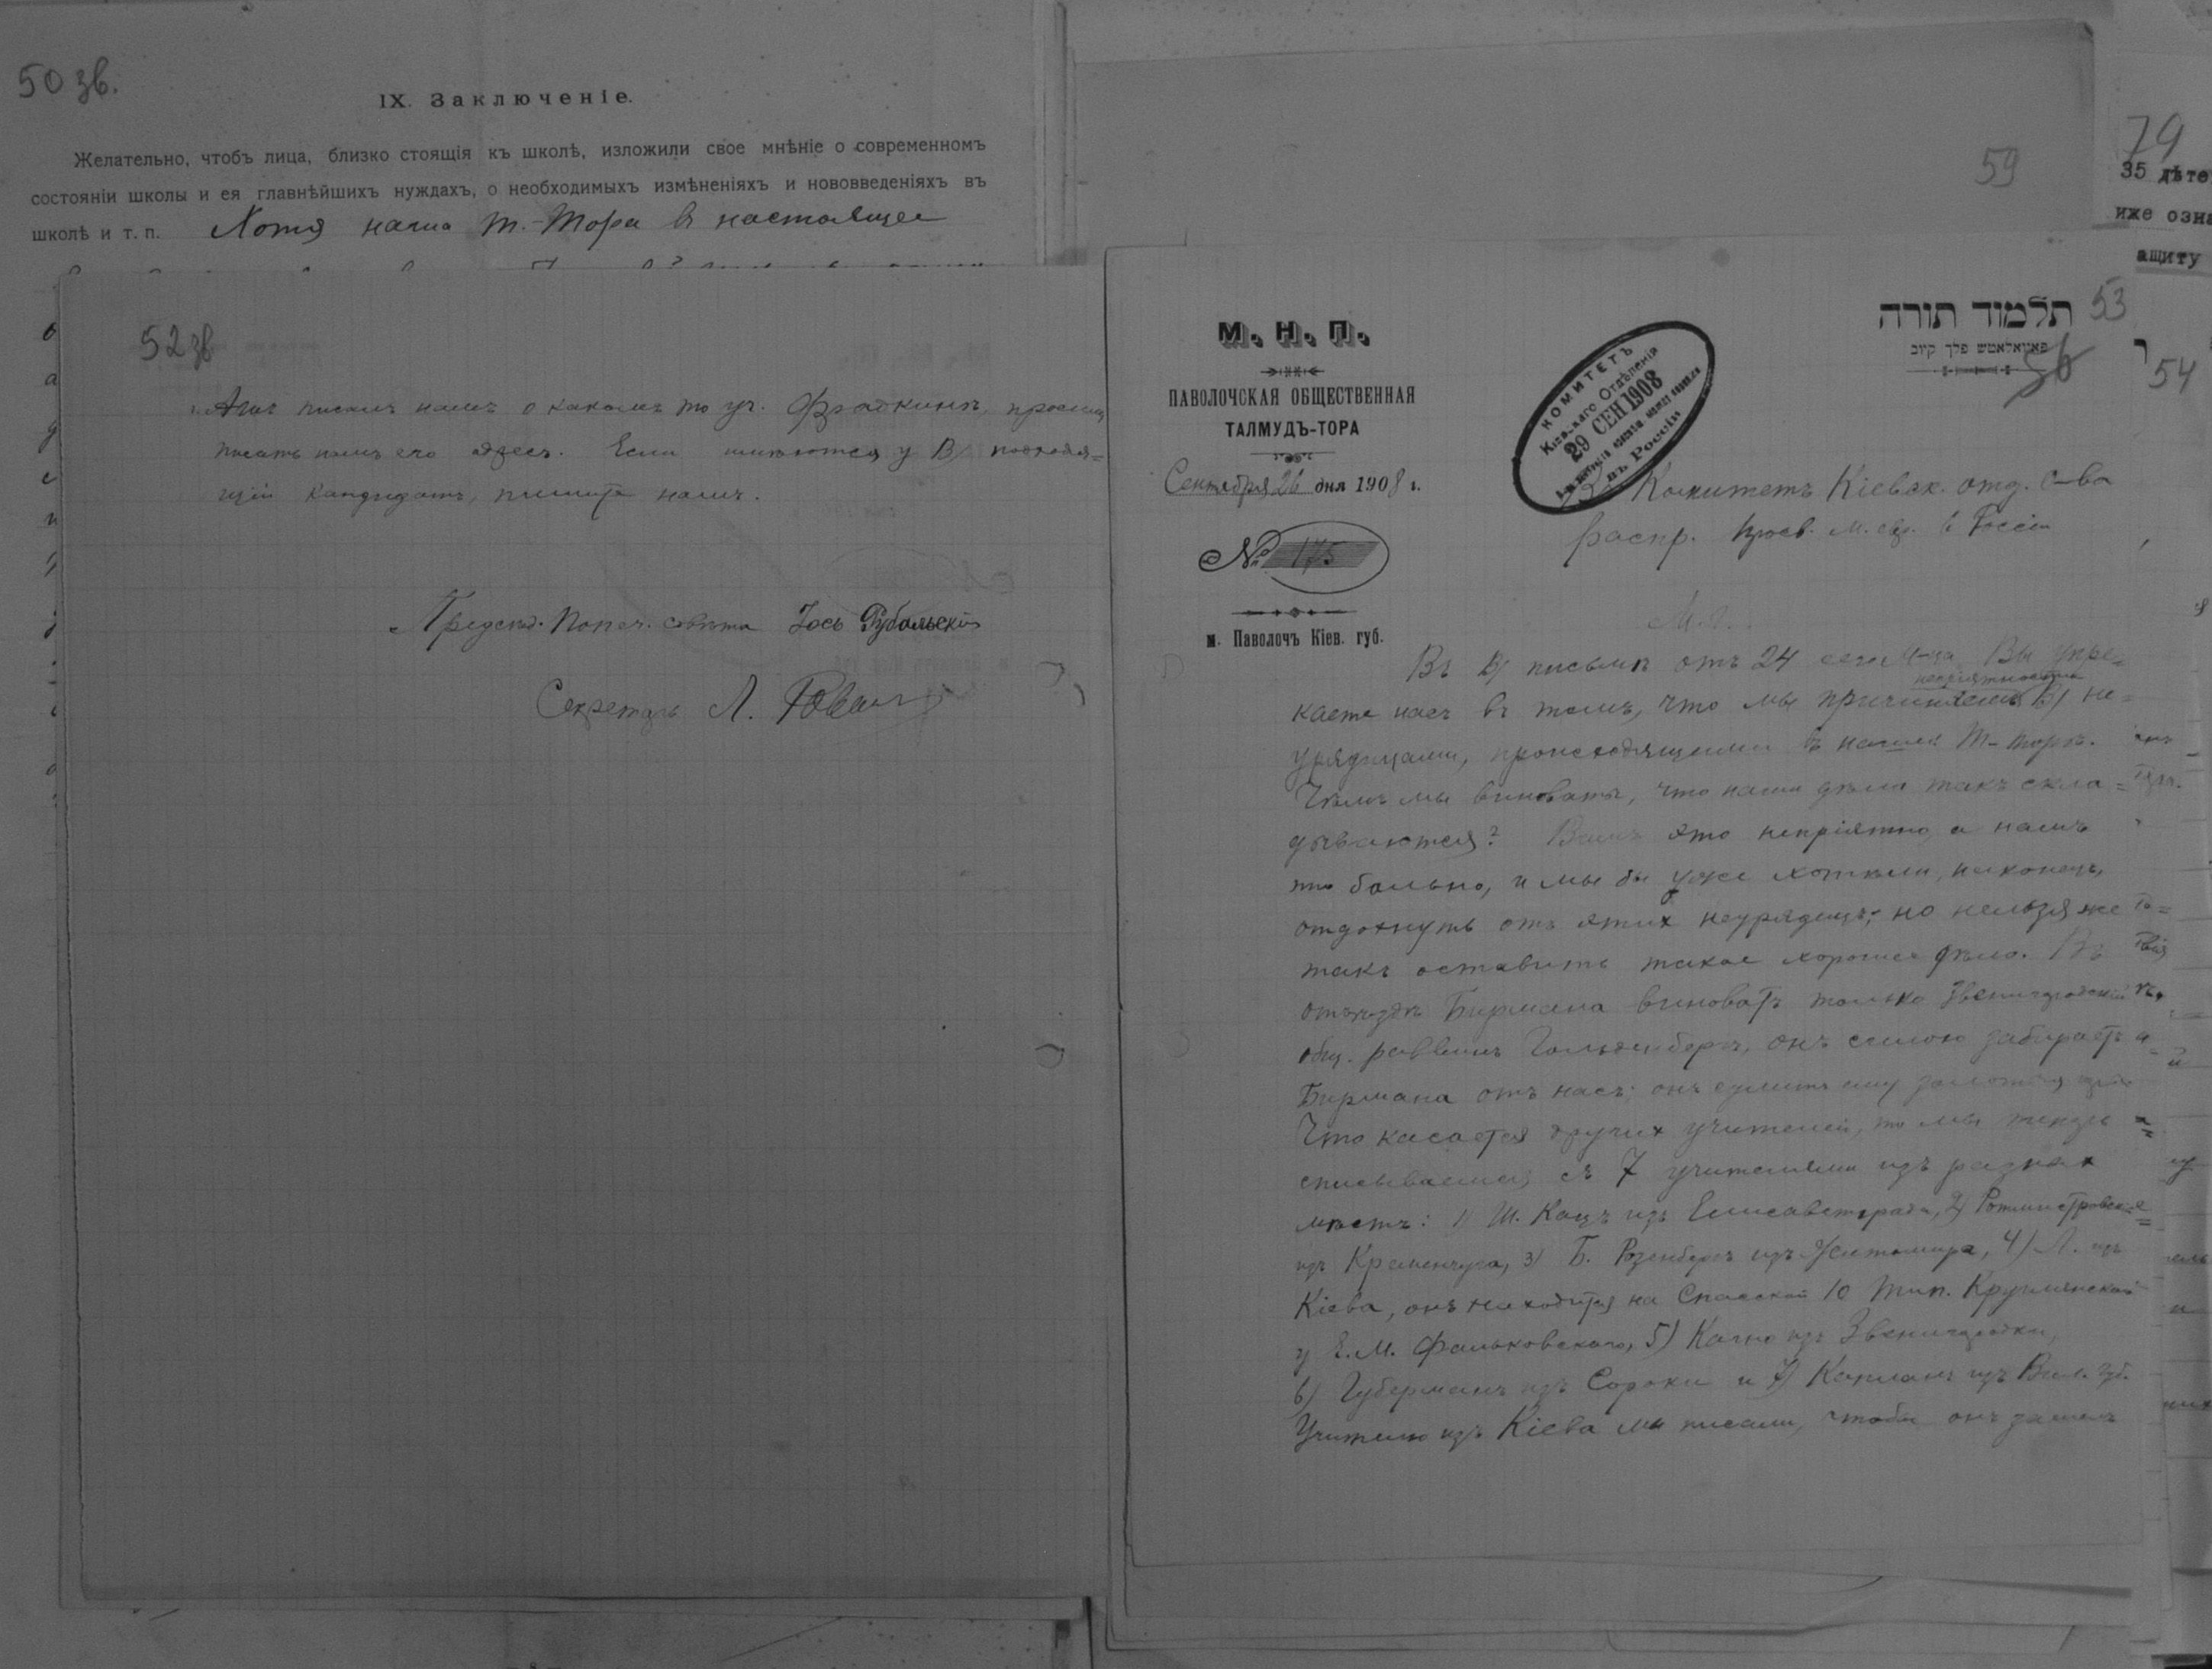 50 зв.
IX. Заключеніе.
Желательно, чтобъ лица, близко стоящія къ школѣ, изложили свое мнѣніе о современномъ
состояніи школы и ея главнѣйшихъ нуждахъ, о необходимыхъ измѣненіяхъ и нововведеніяхъ въ
школѣ и т. п. Хотя наша Т.-Тора в настоящее
52 зв
писали намъ о какомъ то уч. Фрадкинѣ,
писать намъ его адресъ. Если имѣются у В/ подходя=
щій кандидатъ, пишите намъ.
Предсѣд. Попеч. совѣта Іось
Секретарь Л.
59
79
35 дѣте
иже озна
ащиту
М. Н. П.
ПАВОЛОЧСКАЯ ОБЩЕСТВЕННАЯ
ТАЛМУДЪ-ТОРА
Сентября 26 дня 1908 г.
№ 175
м. Паволочъ Кіев. губ.
КОМИТЕТЪ
Кіевскаго Отдѣленія
29 СЕН 1908
въ Россіи
תלמוד תורה
פאוואלאטש פלך קיוב
53
56
54
Комитетъ Кіевск. отд. О-ва
распр. просв. м. евр. в Россіи
М. г.
Въ В/ письмѣ отъ 24 сего м-ца Вы упре=
непріятности
каете насъ въ томъ, что мы причиняемъ В/ не=
урядицами, происходящими въ нашей Т-торѣ.
Чѣмъ мы виноваты, что наши дѣла такъ скла=
дываются? Вамъ это непріятно, а намъ
это больно, и мы бы уже хотѣли, наконецъ,
отдохнуть отъ этих неурядицъ; но нельзя же
такъ оставить такое хорошее дѣло. Въ
отъѣздѣ Бирмана виноватъ только Звенигородскій
общ. раввинъ Гольденбергъ, онъ силою забираетъ
Бирмана отъ насъ; онъ сулитъ ему золотыя
Что касается других учителей, то мы теперь
списываемся съ 7 учителями изъ разных
мѣстъ: 1) Ш. Кацъ изъ Елисаветграда, 2)
изъ Кременчуга, 3) Б. Розенбергъ изъ Житомира, 4) Л. изъ
Кіева, онъ находится на Спасской 10 тип.
у Е. М. Фальковскаго, 5) изъ Звенигородки,
6) Губерманъ изъ Сороки и 7) Капланъ изъ Вил. губ.
Учителю изъ Кіева мы писали, чтобы онъ зашелъ